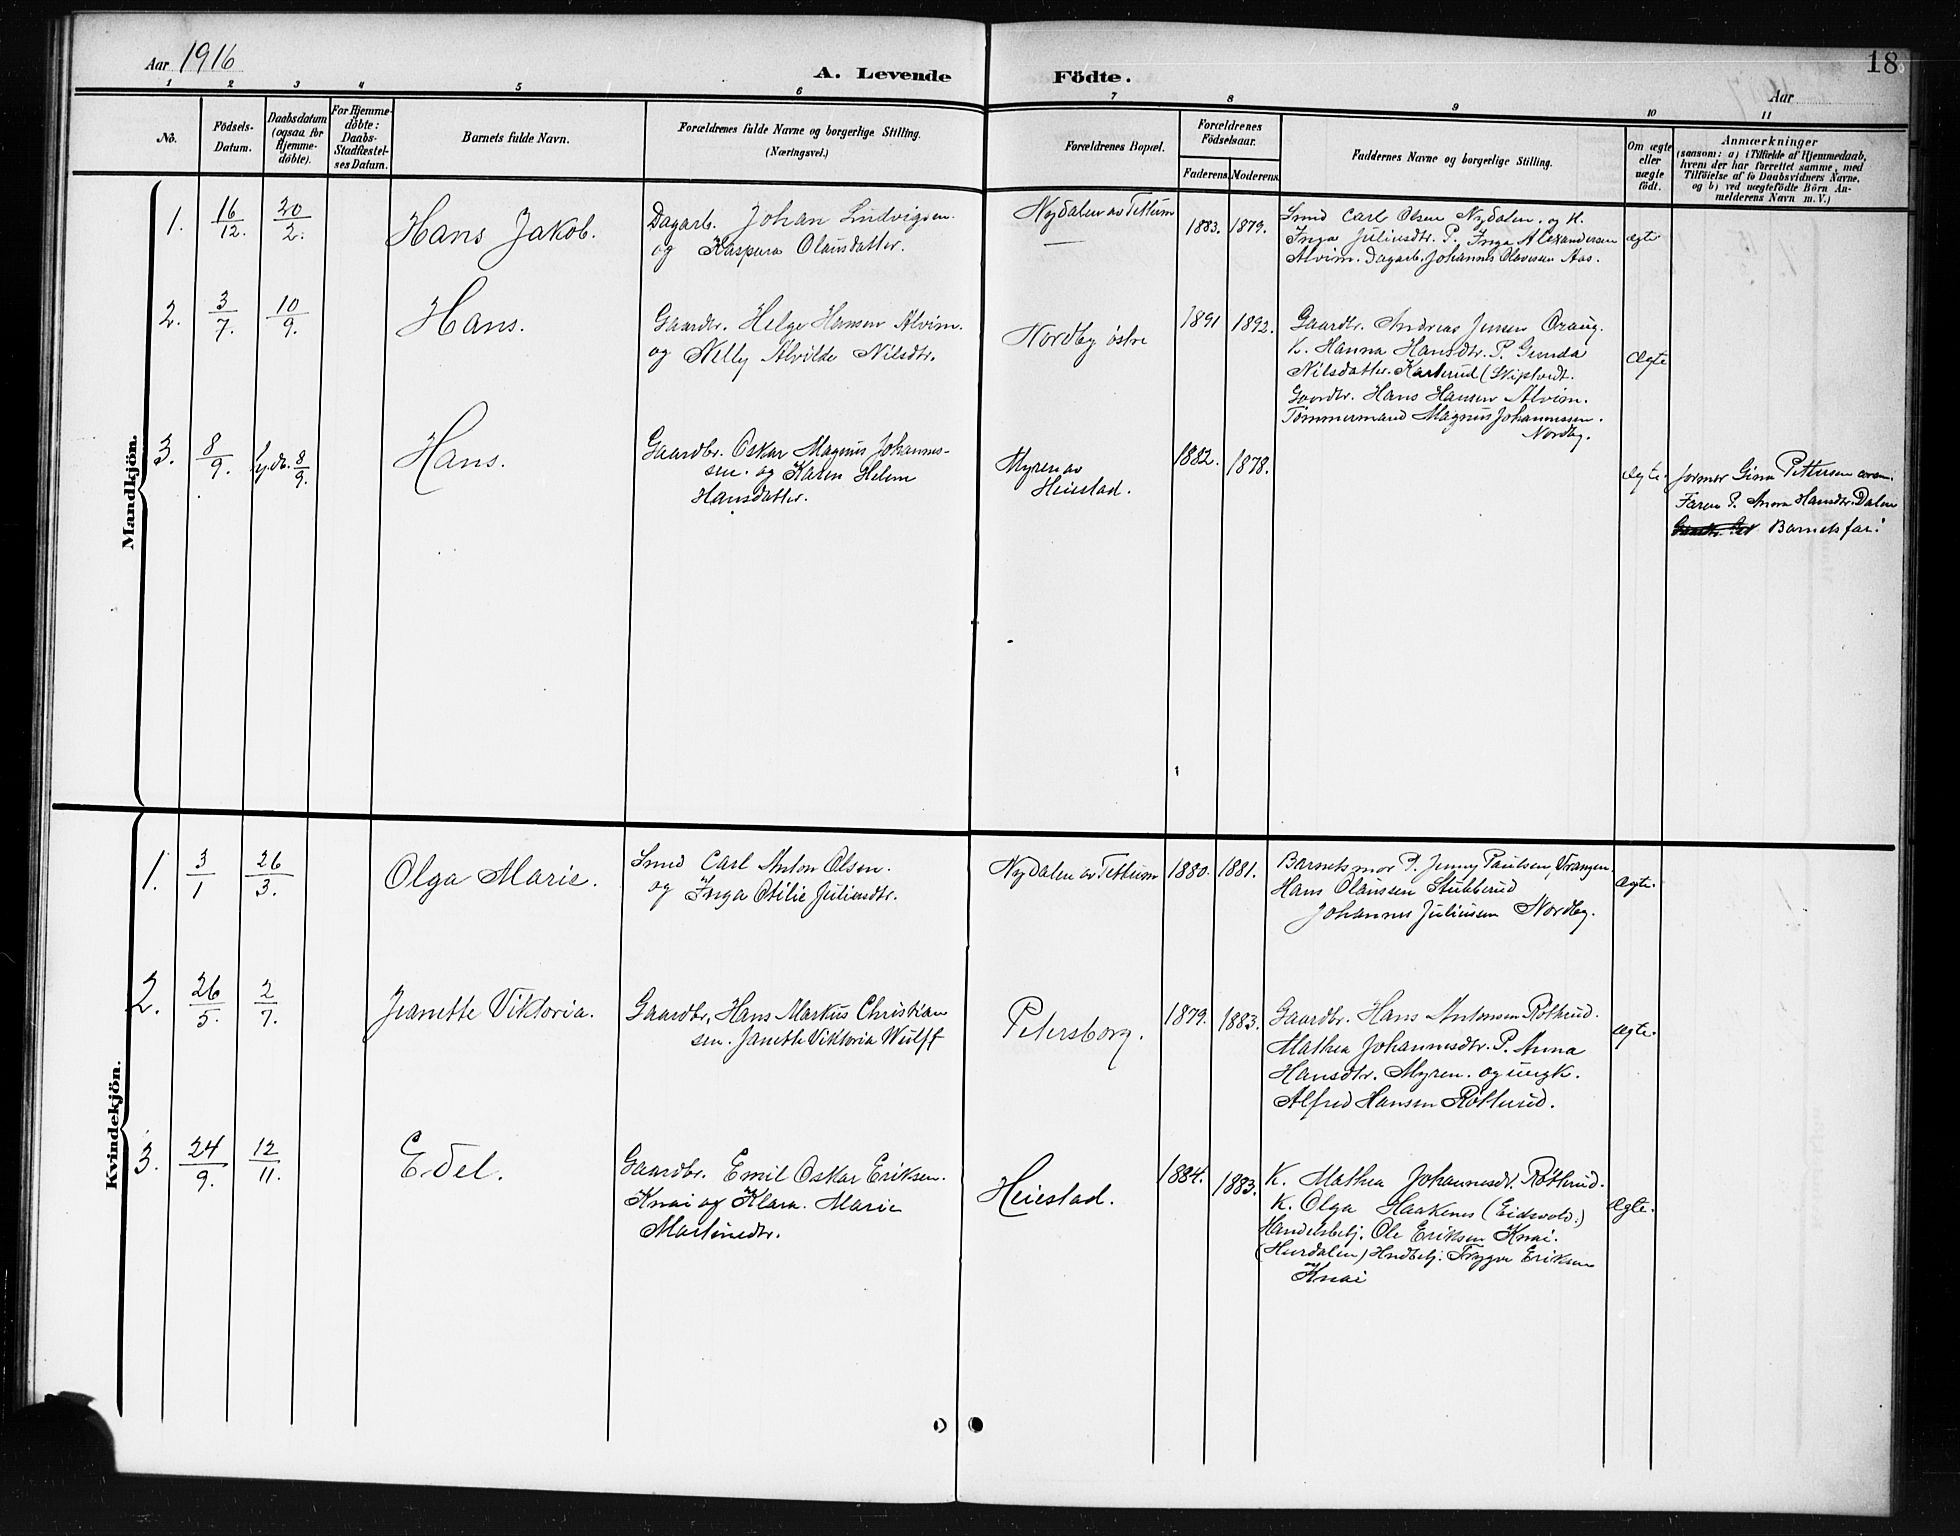 Aar 1916
A. Levende Födte.
18
Aar
1 2 3 4 5 6 7 8 9 10 11
No.
Födsels-Datum.
Daabsdatum (ogsaa for Hjemme-döbte).
For Hjemme-döbte: Daabs-Stadfæstel-ses Datum.
Barnets fulde Navn.
Forældrenes fulde Navne og borgerlige Stilling.
(Næringsvei.)
Forældrenes Bopæl.
Forældrenes Födselsaar.
Faderens. Moderens.
Faddernes Navne og borgerlige Stilling.
Om ægte eller uægte födt.
Anmærkninger
(saasom: a) i Tilfælde af Hjemmedaab,
hvem der har forrettet samme, med
Tilföielse af to Daabsvidners Navne,
og b) ved uægtefödte Börn An-
melderens Navn m. V.)
Mandkjön.
1. 16/12. 20/2. Hans Jakob.
Dagarb. Johan Ludvigsen.
og Kaspara Olausdatter.
Nydalen av Tettum
1883. 1879.
Smed Carl Olsen Nydalen, og K.
Inga Juliusdtr. P. Inga Alexandersen
Alvim. Dagarb. Johannes Olavesen Aas.
ægte
2. 3/7. 10/9. Hans.
Gaardbr. Helge Hansen Alvim.
og Nelly Alvilde Nilsdtr.
Nordby östre
1891 1892.
Gaardbr. Andreas Jensen
K. Hanna Hansdtr. P. Gunda
Nilsdatter. Karterud (Skiptvedt.
Gaardbr. Hans Hansen Alvim.
Tømmermand Magnus Johannessen.
Nordby.
Ægte
3. 8/9. hj.db. 8/9. Hans.
Gaardbr. Oskar Magnus Johannes-
sen. og Karen Helene
Hansdatter.
Myren av
Heiestad.
1882. 1878.
Ægte.
Jormor Gina Pettersen
Faren P. Anna Hansdtr. Dalen
Barnets far.
Kvindekjön.
1. 3/1 26/3. Olga Marie.
Smed Carl Anton Olsen.
og Inga Otilie Juliusdtr.
Nydalen av Tettum
1880. 1881.
Barnets mor P. Jenny Paulsen, Vrangen.
Hans Olaussen Stubberud
Johannes Juliussen Nordby.
Ægte.
2. 26/5. 2/7. Jeanette Viktoria.
Gaardbr. Hans Markus Christian
sen. Janette Viktoria Wulff
Petersborg.
1879. 1883.
Gaardbr. Hans Antonsen Røtterud.
Mathea Johannesdtr. P. Anna
Hansdtr. Myren. og ungk.
Alfred Hansen Røtterud.
Ægte.
3. 24/9. 12/11. Edel.
Gaardbr. Emil Oskar Eriksen.
Knai og Klara Marie
Martinedtr.
Heiestad.
1884. 1883.
K. Mathea Johannesdt. Røtterud.
K. Olga Haakenes (Eidsvold.)
Handelsbetj. Ole Eriksen Knai.
(Hurdalen) Hndbetj. Trygve Eriksen
Knai
Ægte.